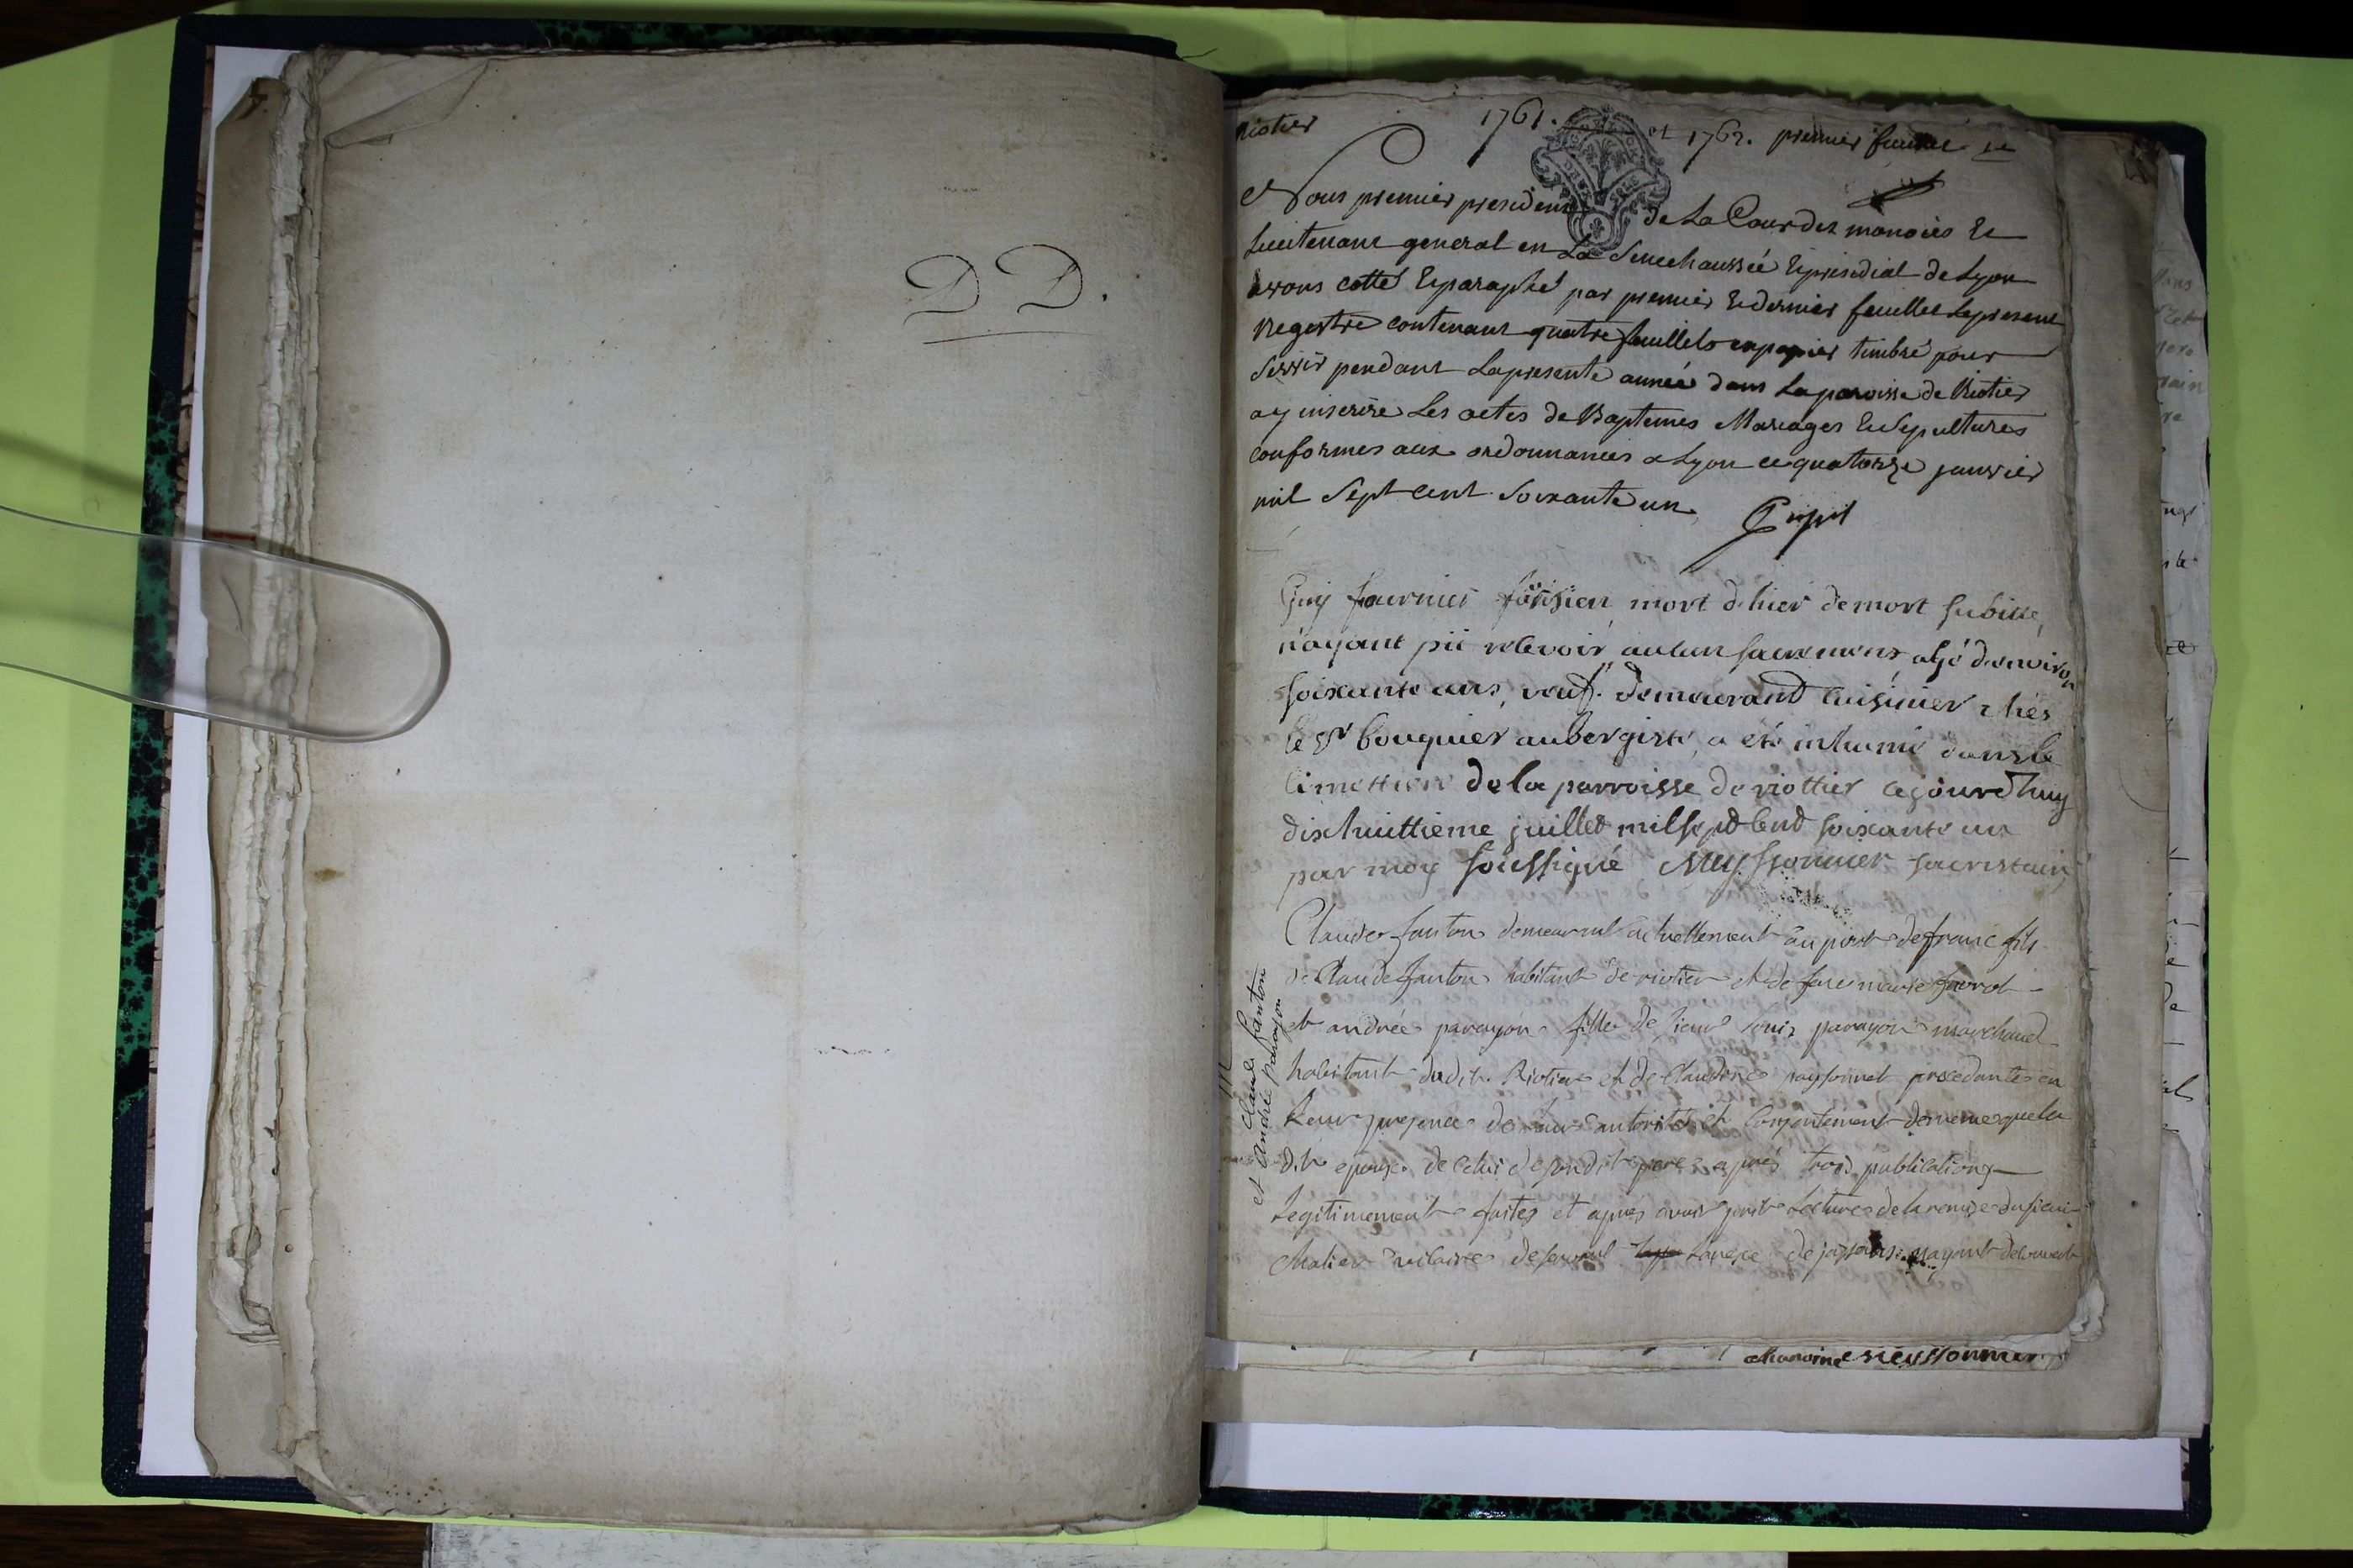 DD.
Riotier
1761. et 1762. premier feuillet
Nous premier president de La Cour des monoies Et
Lieutenant general en La Senechaussée Et presidial de Lyon
avons cotté Et paraphé par premier Et dernier feuillet Le present
Registre contenant quatre feuillets en papier timbré pour
servir pendant La presente année dans La paroisse de Riotier
a y inscrire Les actes de Baptemes Mariages Et Sepultures
conformes aux ordonnances a Lyon ce quatorze janvier
mil Sept cent Soixante un
Pupil
Guy fournier mort d'hier de mort subitte,
n'ayant pû recevoir aucun sacremens agé d'environ
soixante ans, veuf. demeurant cuisinier chés
le Sr bouquier aubergiste, a été inhumé dans le
cimettiere de la parroisse de riottier cejourd'huy
dixhuittieme juillet mil sept cent soixante un
par moy soussigné Meyssonnier sacristain
Claude fanton demeurant actuellement au port de franc fils
de Claude fanton habitant de riotier et de marie
et andrée parayon fille de sieur Louis parayon marchand
habitant dudit Riotier et de Claudine procedante en
leur presence de leur autorité et consentement de meme que le
dit epoux de celui de sondit pere apres trois publications
Legitimement faites et apres avoir lecture de la remise du sieur
vicaire de annexe de jassans n'ayant decouvert
et Claude fanton
et Andrée parayon
chanoine meyssonnier